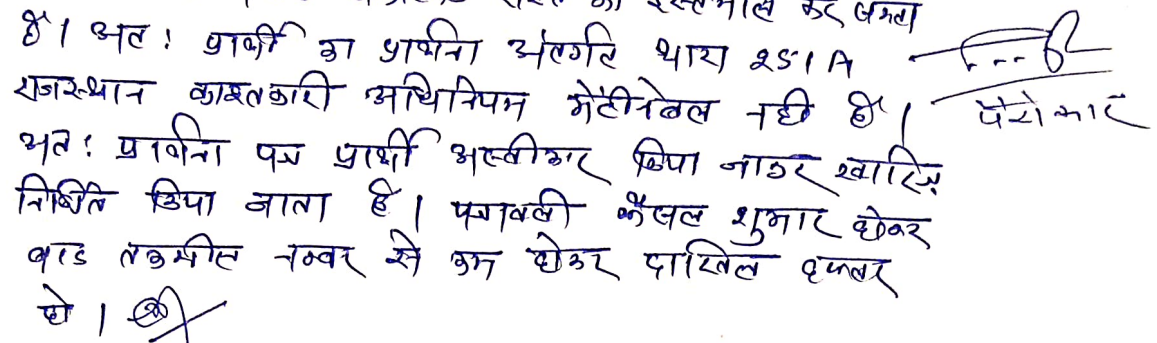 रास्ते का इस्तेमाल कर सकता
है। अतः प्रार्थी का प्रार्थना अंतर्गत धारा 251A
राजस्थान काश्तकारी अधिनियम मेंटीनेबल नही है।
पैरोकार
अतः प्रार्थना पत्र प्रार्थी अस्वीकार किया जाकर खारिज
निर्णित किया जाता है। पत्रावली फैसल शुमार होकर
बाद तकमील नम्बर से कम होकर दाखिल दफ्तर
हो।